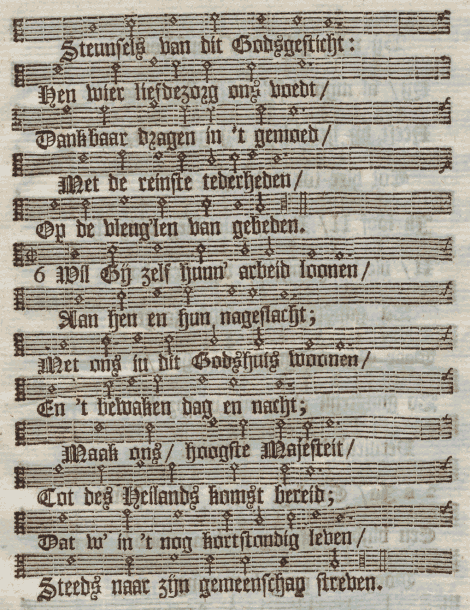 Steunsels van dit Godsgesticht:
Hen wier liefdezorg ons voedt/
Dankbaar dragen in 't gemoed/
Met de reinste tederheden/
Op de vleug'len van gebeden.
6 Wil Gij zelf hunn' arbeid loonen/
Aan hen en hun nageslacht;
Met ons in dit Godshuis woonen/
En 't bewaken dag en nacht;
Maak ons/ hoogste Majesteit/
Tot des Heilands komst bereid;
Dat w' in 't nog kortstondig leven/
Steeds naar zijn gemeenschap streven.